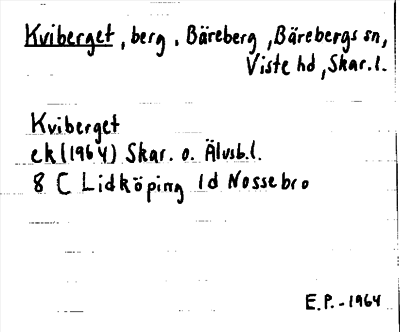 Kviberget, berg. Bäreberg, Bärebergs sn,
Viste hd, Skar.l.
Kviberget
ek(1964) Skar. o. Älvsb.l.
8 C Lidköping 1d Nossebro
E.P.-1964